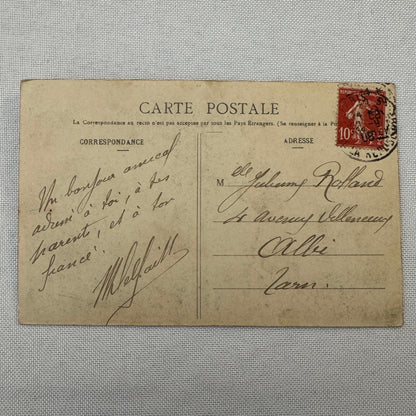 CARTE POSTALE
La Correspondance au recto n'est pas acceptée par tous les Pays Étrangers. (Se renseigner à la
CORRESPONDANCE
ADRESSE
Un bonjour amical
adressé à toi, à tes
parents, et à ton
fiancé.
Melle Rolland
4 avenue Villeneuve
Albi
Tarn.
10